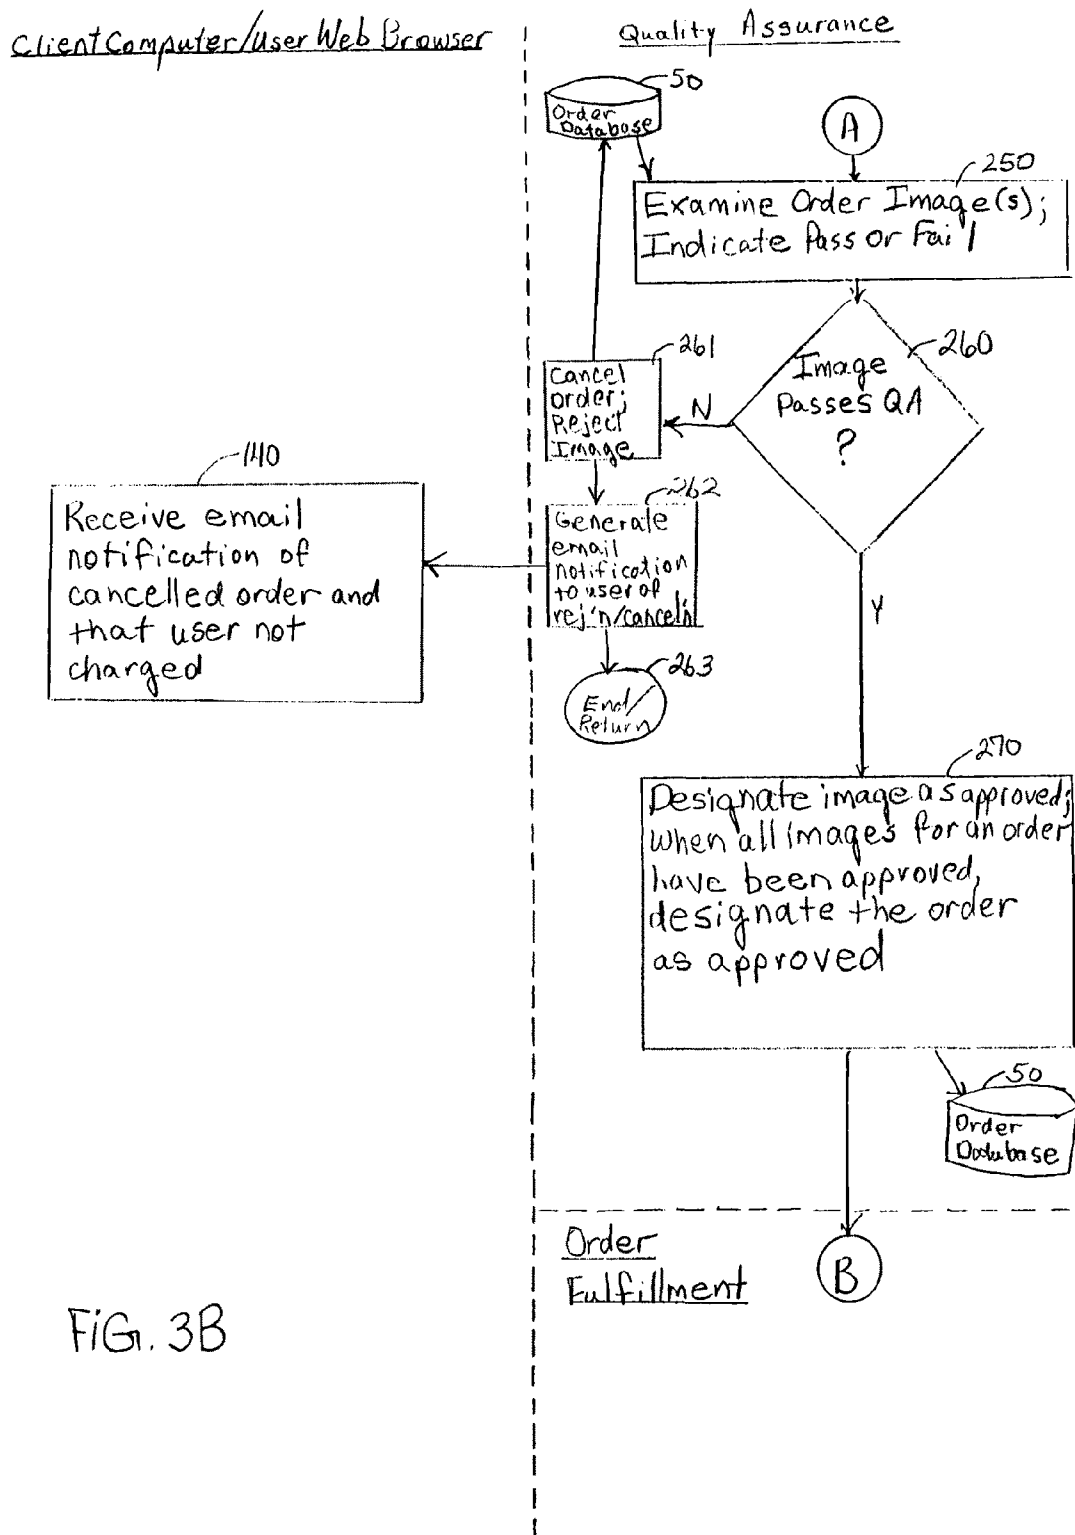 Client Computer/User Web Browser
Quality Assurance
50
Order
Database
A
250
Examine Order Image(s);
Indicate Pass or Fail
260
Image
Passes QA
?
N
261
Cancel
order;
Reject
Image
262
Generate
email
notification
to user of
rej'n/cancel'n
140
Receive email
notification of
cancelled order and
that user not
charged
263
End/
Return
Y
270
Designate image as approved;
when all images for an order
have been approved,
designate the order
as approved
50
Order
Database
Order
Fulfillment
B
FIG. 3B